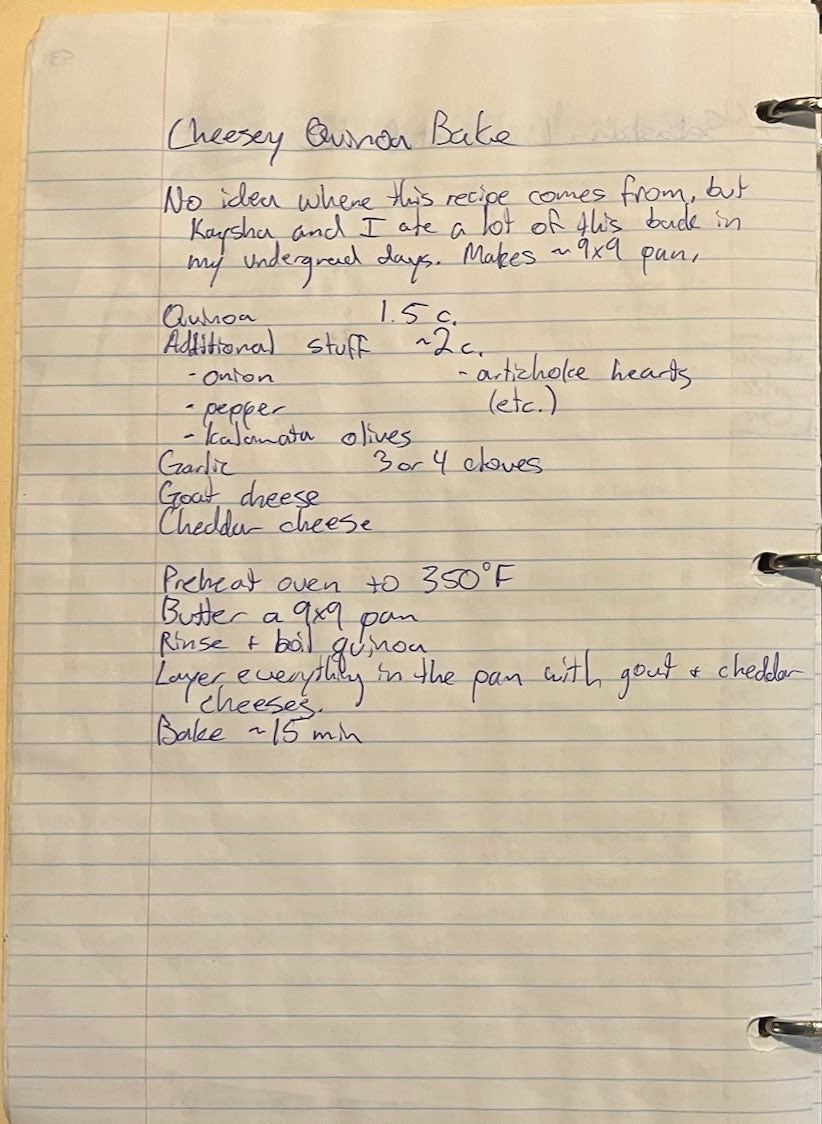 Cheesey Quinoa Bake
No idea where this recipe comes from, but
Kaysha and I ate a lot of this back in
my undergrad days. Makes ~9x9 pan.
Quinoa 1.5 c.
Additional stuff ~2c.
- onion - artichoke hearts
- pepper (etc.)
- kalamata olives
Garlic 3 or 4 cloves
Goat cheese
Cheddar cheese
Preheat oven to 350°F
Butter a 9x9 pan
Rinse + boil quinoa
Layer everything in the pan with goat + cheddar
cheeses.
Bake ~15 min